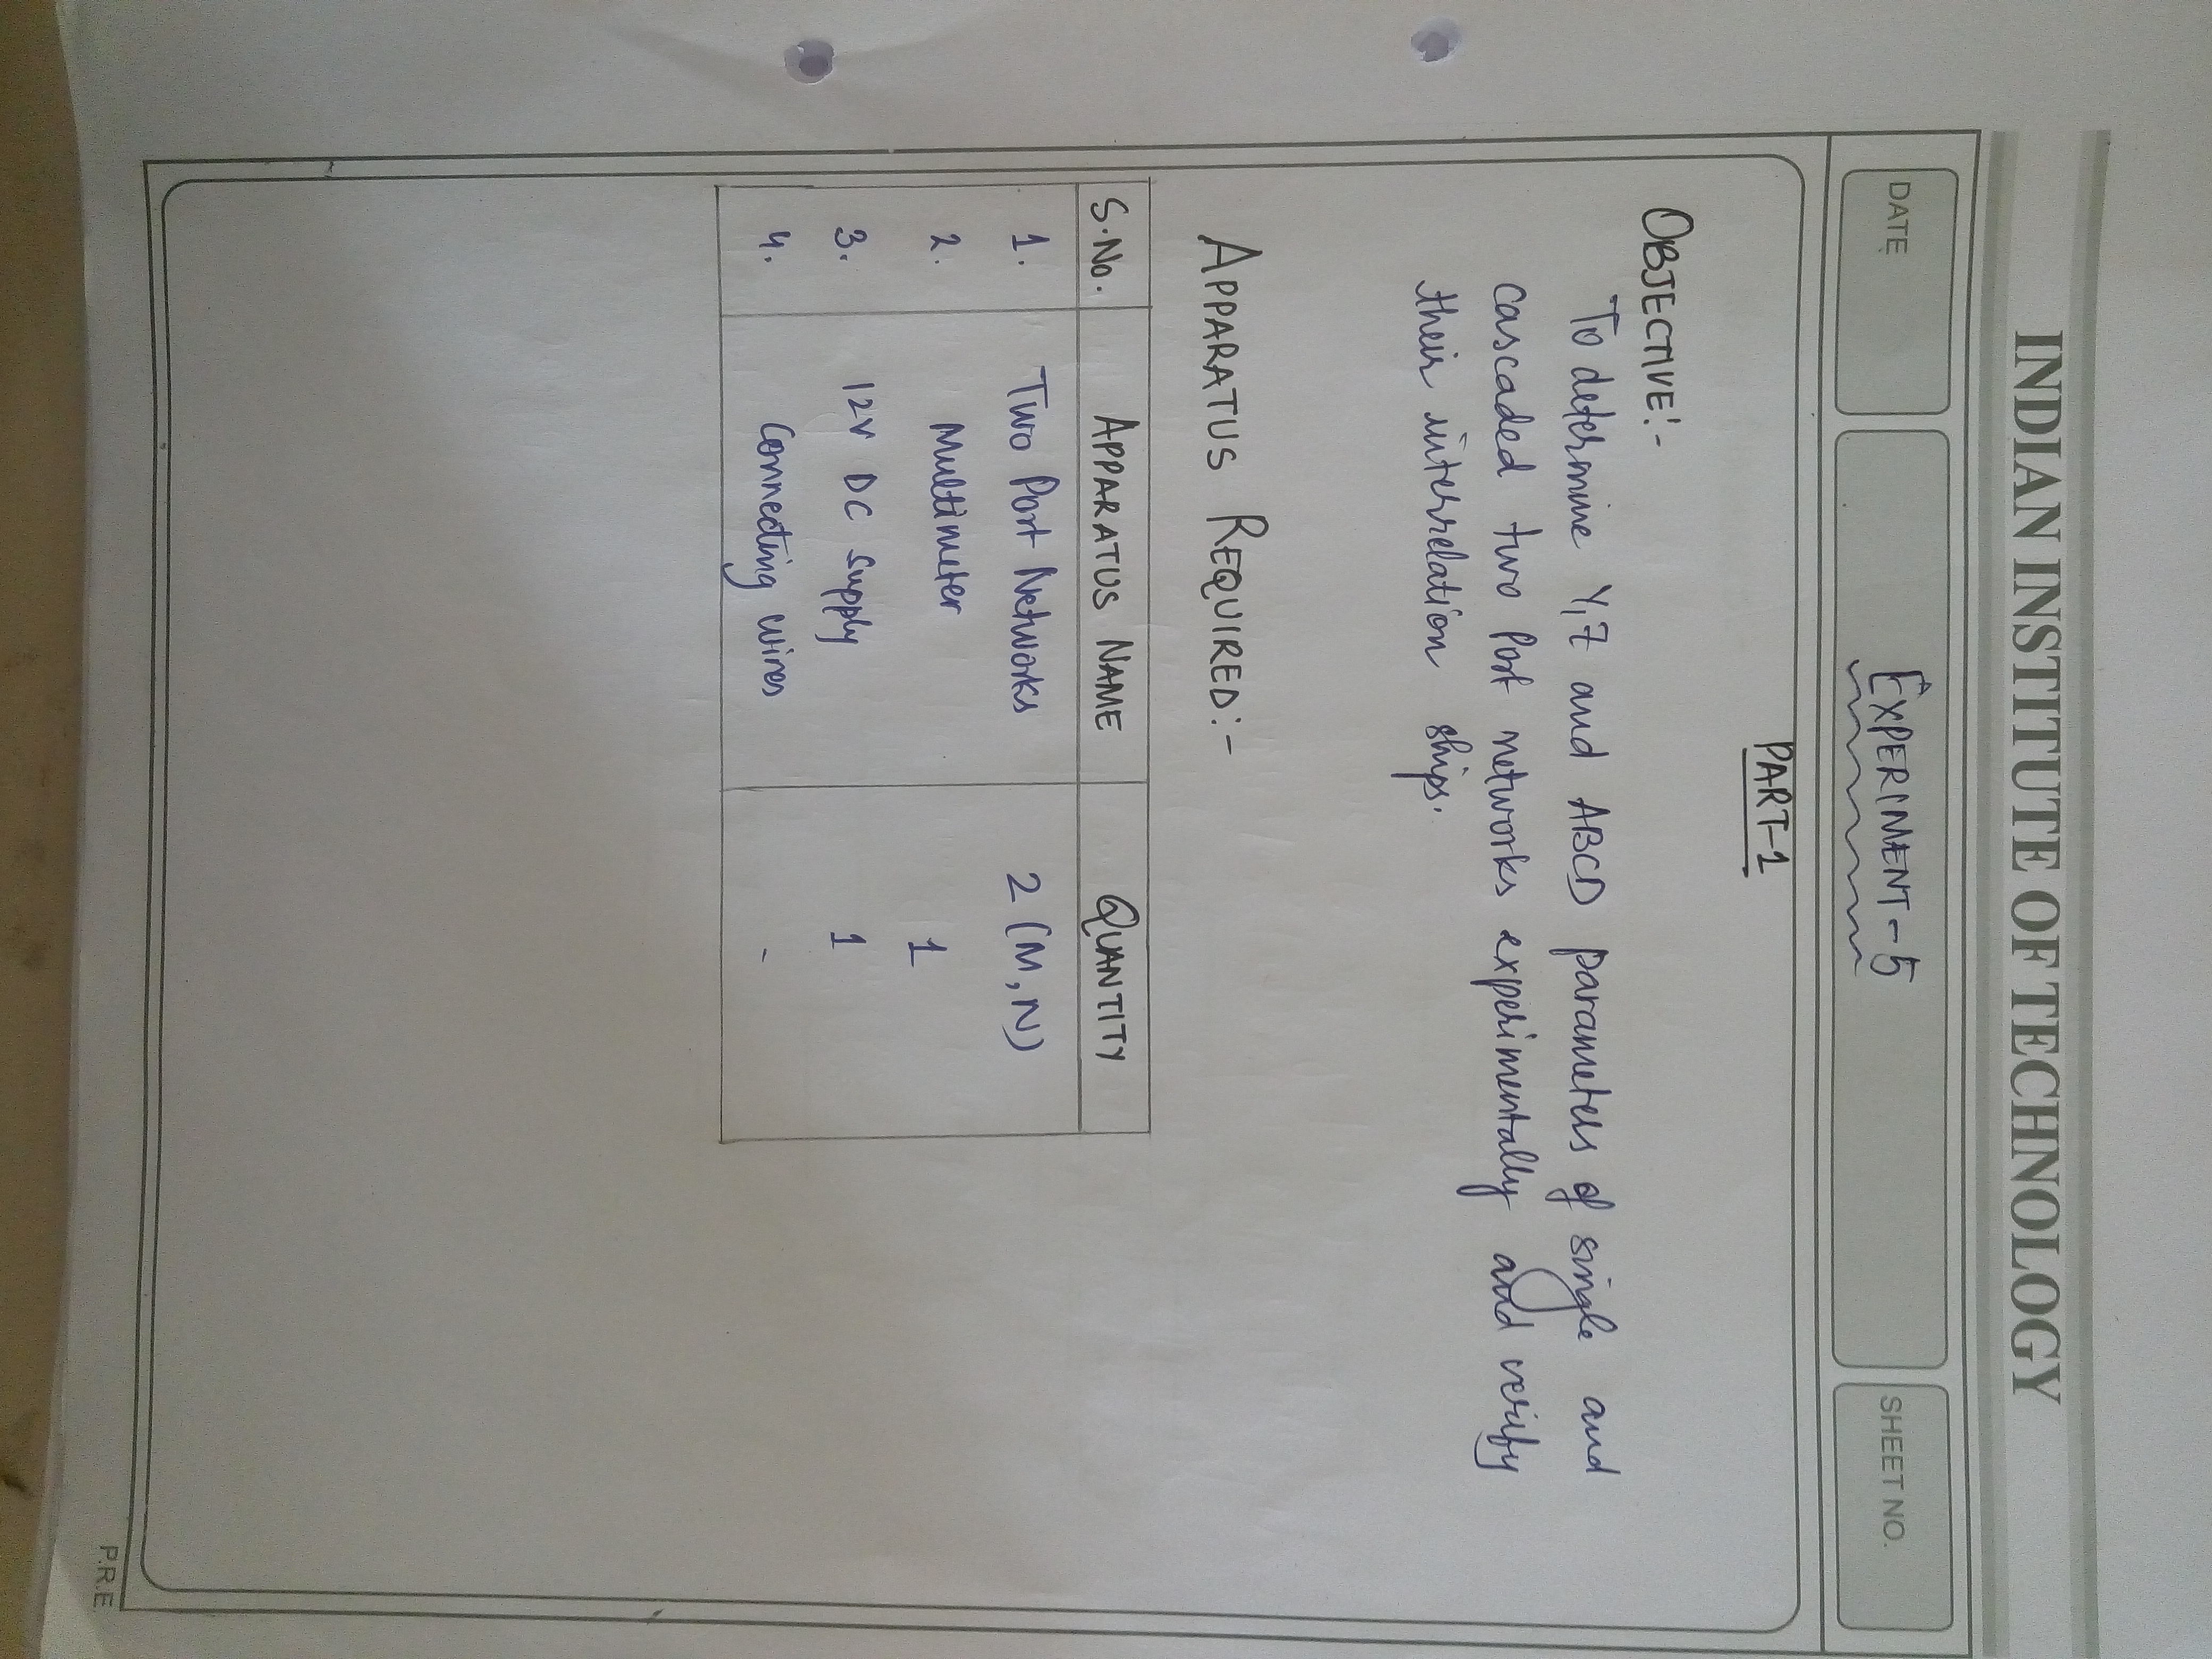 INDIAN INSTITUTE OF TECHNOLOGY
DATE
EXPERIMENT-5
SHEET NO.
PART-1
OBJECTIVE:-
To determine Y,Z and ABCD parameters of single and
cascaded two Port networks experimentally and verify
their interrelation ships.
APPARATUS REQUIRED:-
S.No. APPARATUS NAME QUANTITY
1. Two Port Networks 2 (M,N)
2. Multimeter 1
3. 12V DC Supply 1
4. Connecting wires -
P.R.E.